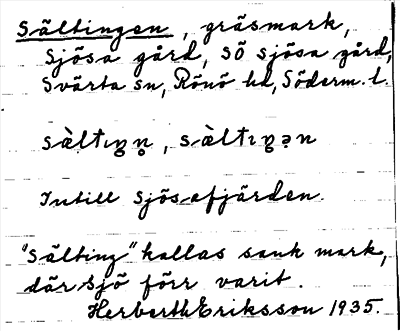 Sältingen, gräsmark,
Sjösa gård, SÖ Sjösa gård,
Svärta sn, Rönö hd, Söderm. l.
sàltɪŋn̥, sàltɪŋən
Intill Sjösafjärden.
"Sälting" kallas sank mark,
där sjö förr varit.
Herbert Eriksson 1935.